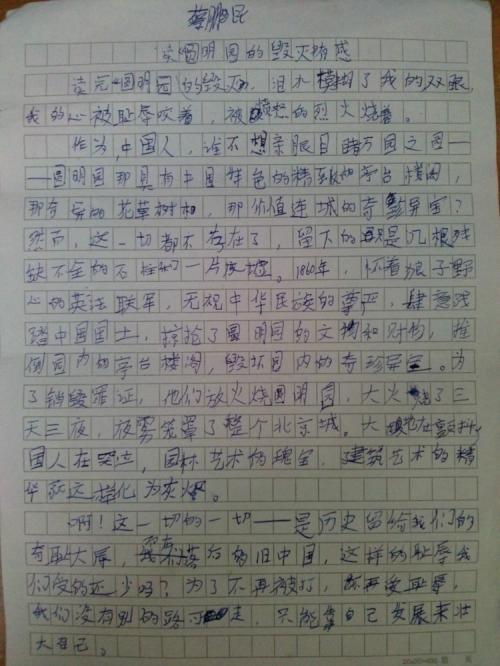 蔡鹏昆
读圆明园的毁灭有感
读完圆明园的毁灭，泪水模糊了我的双眼，
我的心被耻辱咬着，被愤怒的烈火烧着。
作为中国人，谁不想亲眼目睹万园之园—
—圆明园那具有中国特色的精致的亭台楼阁，
那奇异的花草树木，那价值连城的奇珍异宝？
然而，这一切都不存在了，留下的只是几根残
缺不全的石柱和一片废墟。1860年，怀着狼子野
心的英法联军，无视中华民族的尊严，肆意践
踏中国国土，掠抢了圆明园的文物和财物，推
倒园内的亭台楼阁，毁坏园内的奇珍异宝。为
了销毁罪证，他们放火烧圆明园，大火烧了三
天三夜，夜雾笼罩了整个北京城。大地在颤抖，
国人在哭泣，园林艺术的瑰宝，建筑艺术的精
华就这样化为灰烬。
啊！这一切的一切——是历史留给我们的
奇耻大辱，落后的旧中国，这样的耻辱我
们受的还少吗？为了不再被打，不再受耻辱，
我们没有别的路可走，只能靠自己发展来壮
大自己。